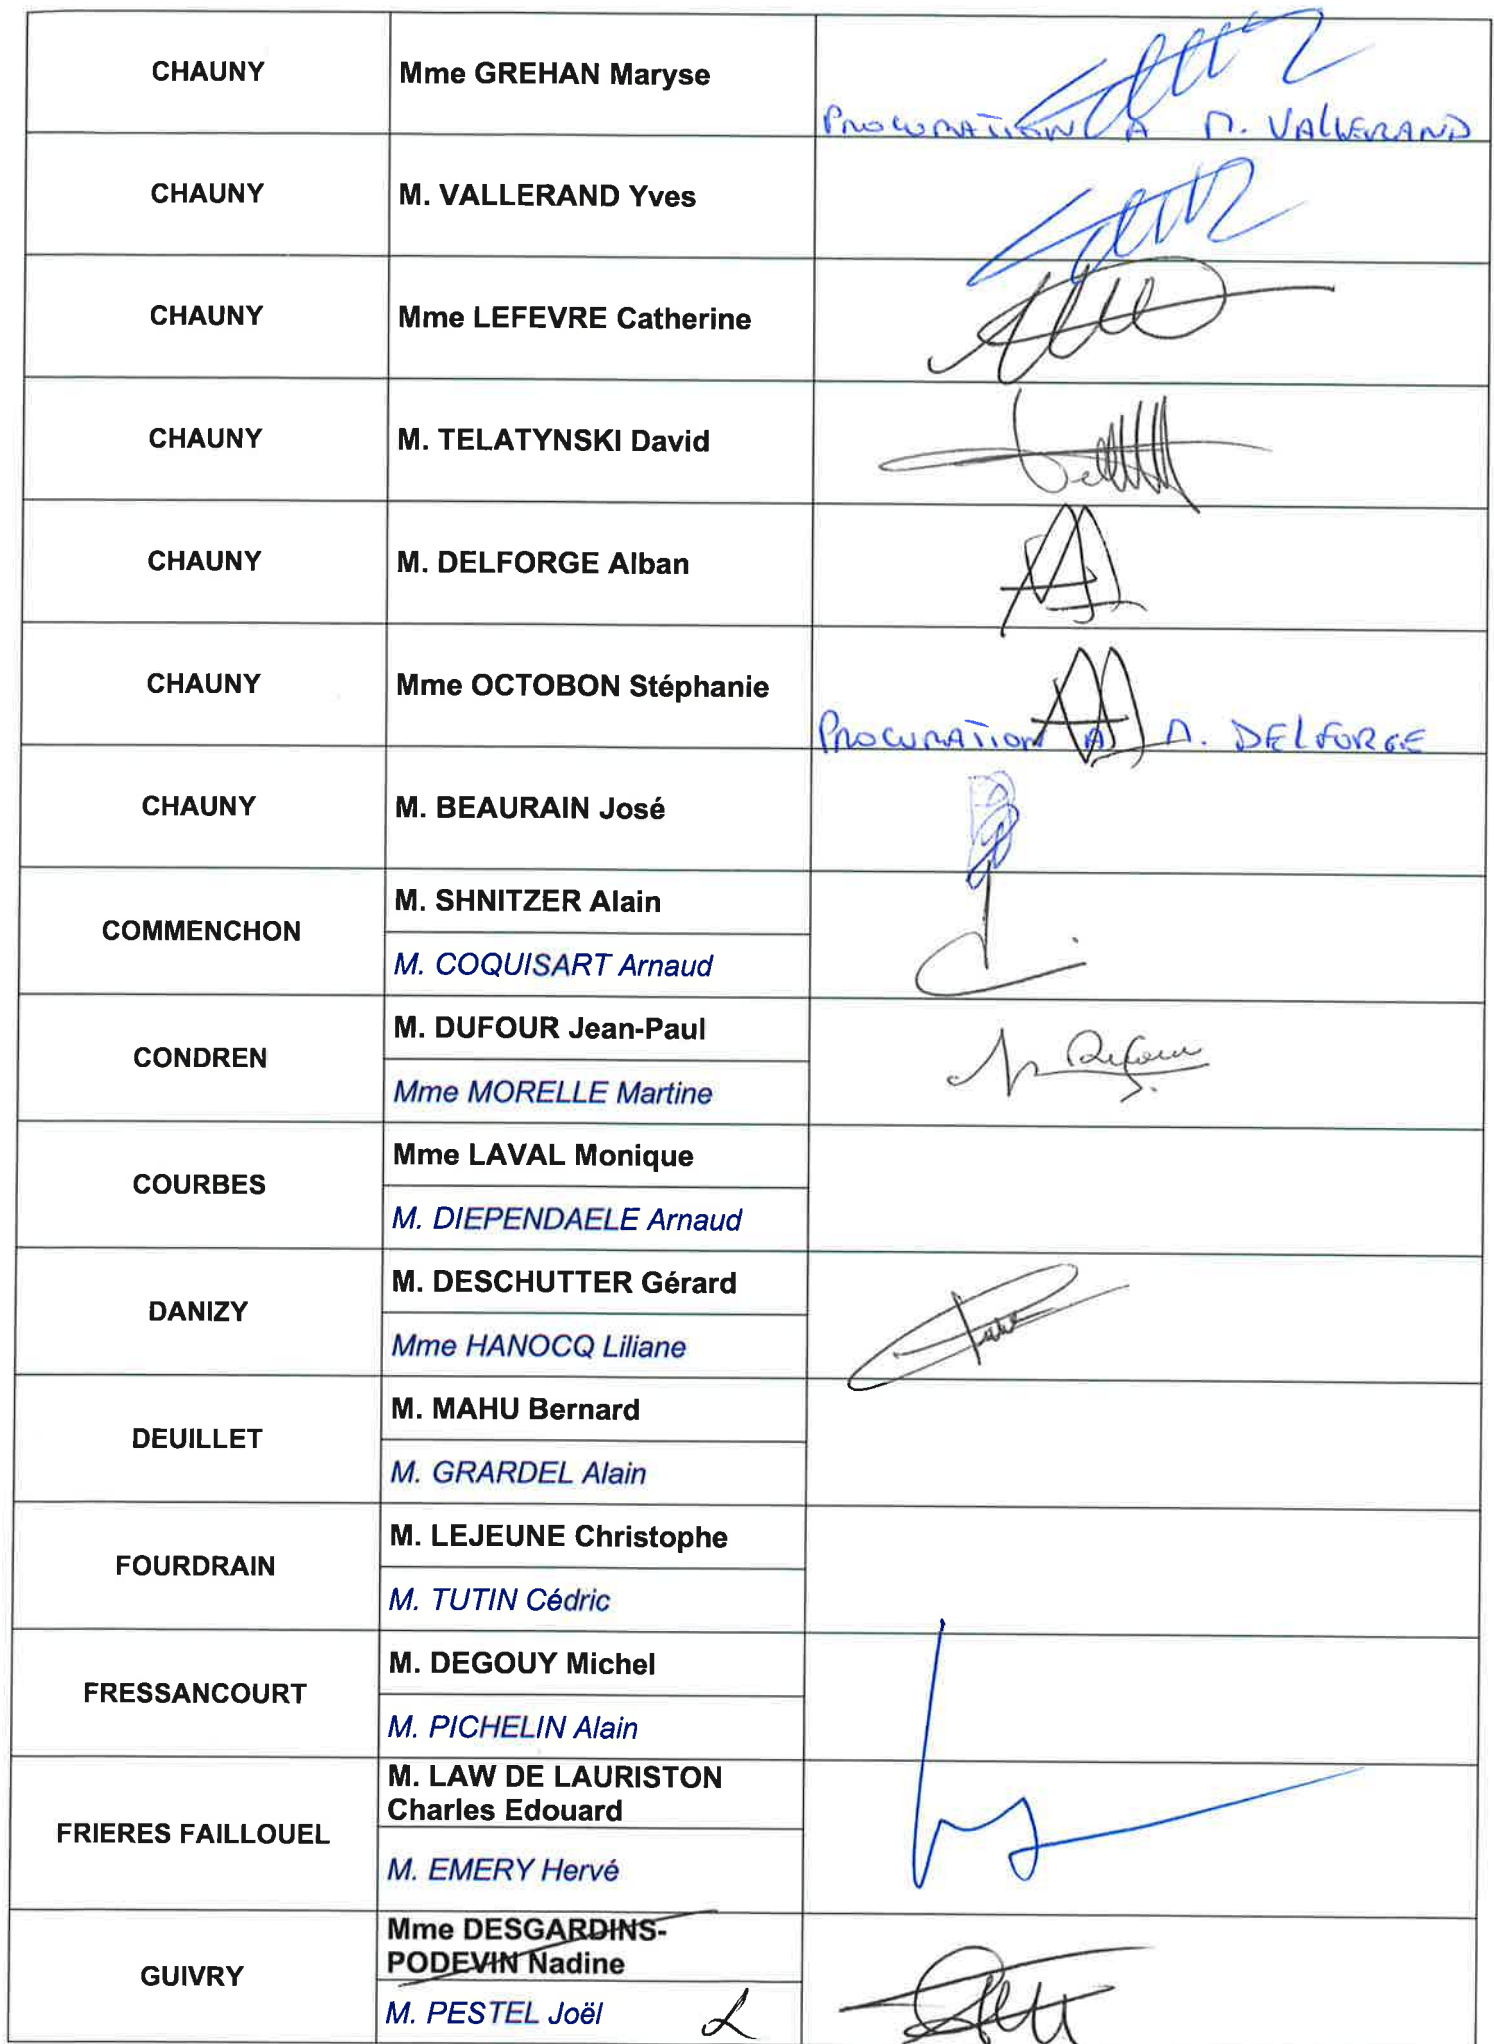 CHAUNY
Mme GREHAN Maryse
PROCURATION A M. VALLERAND
CHAUNY
M. VALLERAND Yves
CHAUNY
Mme LEFEVRE Catherine
CHAUNY
M. TELATYNSKI David
CHAUNY
M. DELFORGE Alban
CHAUNY
Mme OCTOBON Stéphanie
PROCURATION A M. DELFORGE
CHAUNY
M. BEAURAIN José
COMMENCHON
M. SHNITZER Alain
M. COQUISART Arnaud
CONDREN
M. DUFOUR Jean-Paul
Mme MORELLE Martine
COURBES
Mme LAVAL Monique
M. DIEPENDAELE Arnaud
DANIZY
M. DESCHUTTER Gérard
Mme HANOCQ Liliane
DEUILLET
M. MAHU Bernard
M. GRARDEL Alain
FOURDRAIN
M. LEJEUNE Christophe
M. TUTIN Cédric
FRESSANCOURT
M. DEGOUY Michel
M. PICHELIN Alain
FRIERES FAILLOUEL
M. LAW DE LAURISTON
Charles Edouard
M. EMERY Hervé
GUIVRY
Mme DESGARDINS-
PODEVIN Nadine
M. PESTEL Joël